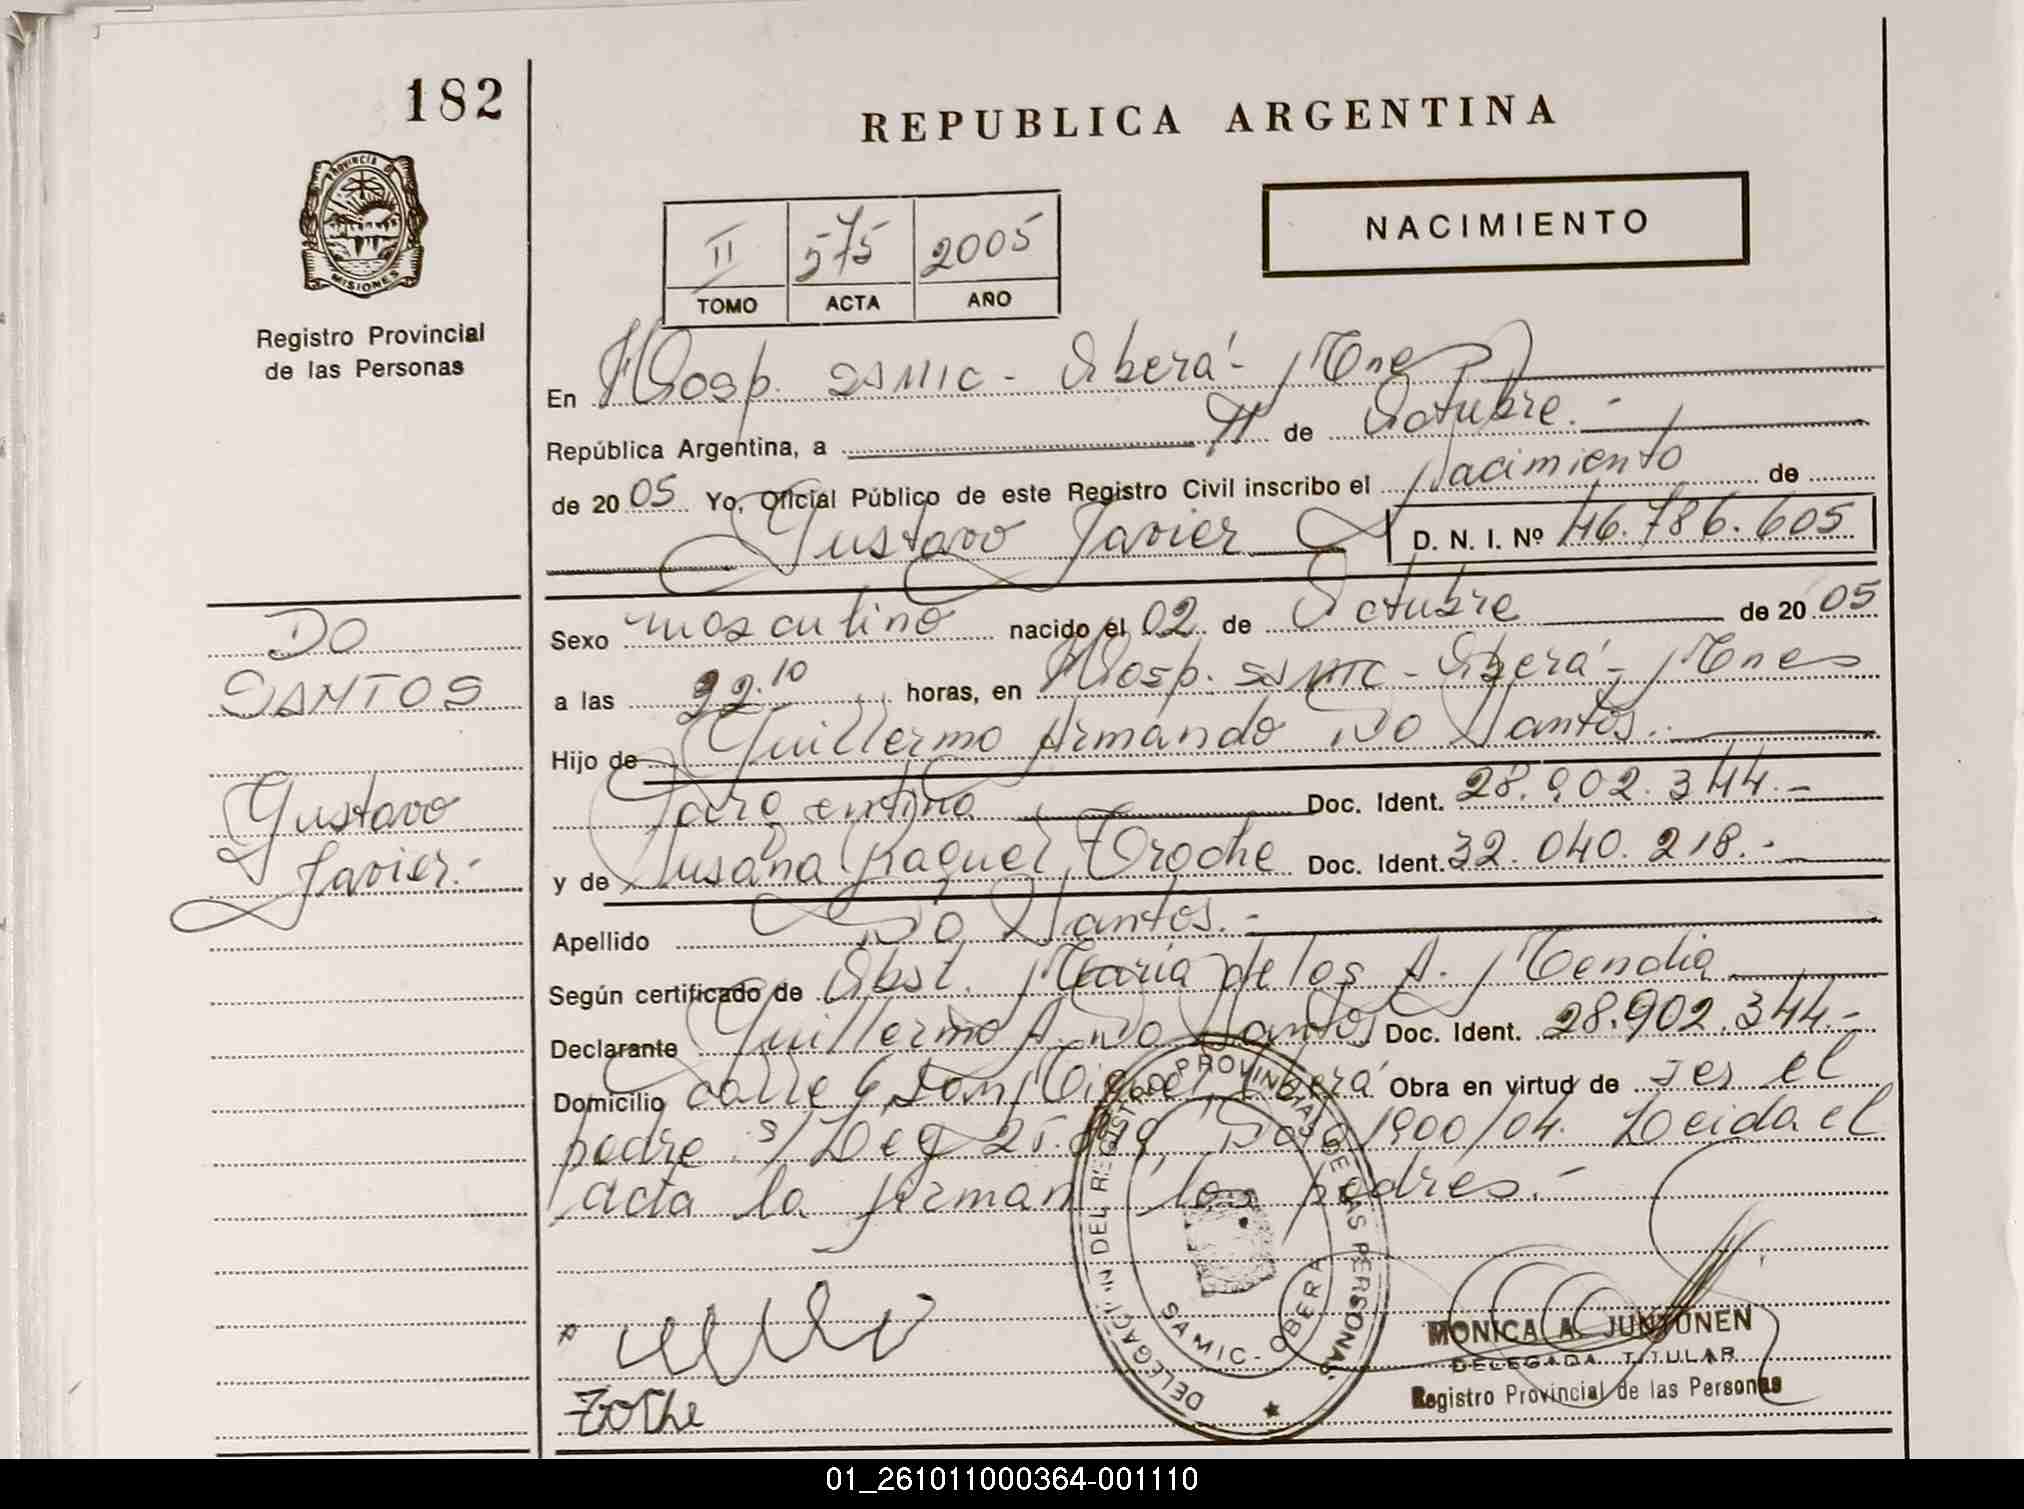 182
REPUBLICA ARGENTINA
PROVINCIA DE
MISIONES
Registro Provincial
de las Personas
NACIMIENTO
II 575 2005
TOMO ACTA AÑO
En Hosp. SAMIC - Oberá - Mnes
República Argentina, a 11 de Octubre.-
de 2005 Yo, Oficial Público de este Registro Civil inscribo el Nacimiento de
Gustavo Javier D. N. I. Nº 46.786.605
DO
SANTOS
Gustavo
Javier.-
Sexo masculino nacido el 02 de Octubre de 2005
a las 22.10 horas, en Hosp. SAMIC - Oberá - Mnes
Hijo de Guillermo Armando Do Santos.
Argentino Doc. Ident. 28.902.344.-
y de Susana Raquel Troche Doc. Ident. 32.040.218.-
Apellido Do Santos.-
Según certificado de Obst. Maria de los A. Mendia
Declarante Guillermo A. Do Santos Doc. Ident. 28.902.344.-
Domicilio calle 6, San Miguel, Oberá Obra en virtud de ser el
padre s/ Leg 1900/04. Leida el
acta la firman los padres.-
DELEGACION DEL REGISTRO PROVINCIAL DE LAS PERSONAS
SAMIC - OBERA
MONICA A. JUNTUNEN
DELEGADA TITULAR
Registro Provincial de las Personas
Troche
01_261011000364-001110